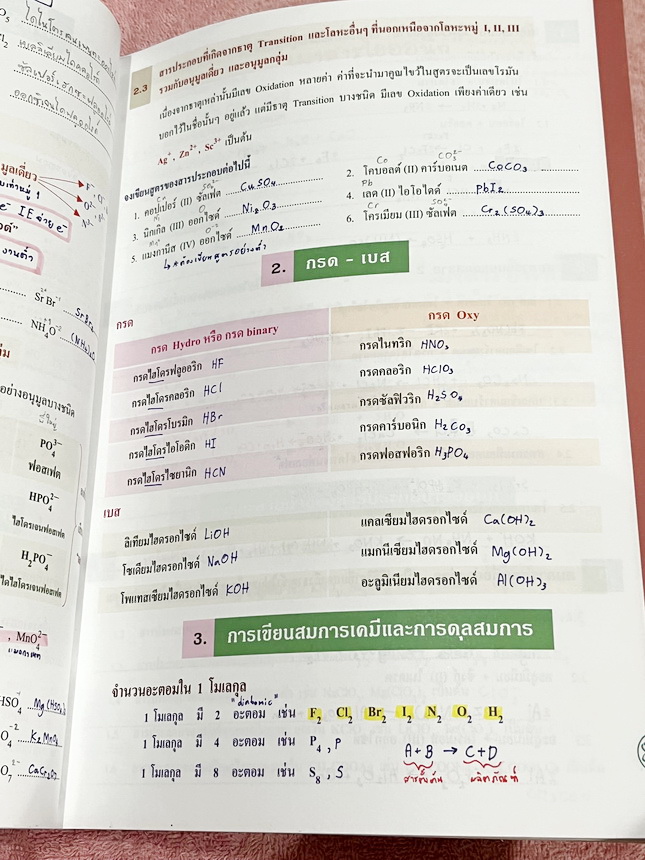 2.3 สารประกอบที่เกิดจากธาตุ Transition และโลหะอื่นๆ ที่นอกเหนือจากโลหะหมู่ I, II, III
รวมกับอนุมูลเดี่ยว และอนุมูลกลุ่ม
เนื่องจากธาตุเหล่านั้นมีเลข Oxidation หลายค่า ค่าที่จะนำมาคูณไขว้ในสูตรจะเป็นเลขโรมัน
บอกไว้ในชื่อนั้นๆ อยู่แล้ว แต่มีธาตุ Transition บางชนิด มีเลข Oxidation เพียงค่าเดียว เช่น
Ag⁺, Zn²⁺, Sc³⁺ เป็นต้น
จงเขียนสูตรของสารประกอบต่อไปนี้
1. คอปเปอร์ (II) ซัลเฟต CuSO₄
2. โคบอลต์ (II) คาร์บอเนต CoCO₃
3. นิกเกิล (III) ออกไซด์ Ni₂O₃
4. เลด (II) ไอโอไดด์ PbI₂
5. แมงกานีส (IV) ออกไซด์ MnO₂
6. โครเมียม (III) ซัลเฟต Cr₂(SO₄)₃
↳ *ต้องเขียนสูตรอย่างต่ำ
2. กรด - เบส
กรด
กรด Hydro หรือ กรด binary
กรด Oxy
กรดไฮโดรฟลูออริก HF
กรดไนทริก HNO₃
กรดไฮโดรคลอริก HCl
กรดคลอริก HClO₃
กรดไฮโดรโบรมิก HBr
กรดซัลฟิวริก H₂SO₄
กรดไฮโดรไอโอดิก HI
กรดคาร์บอนิก H₂CO₃
กรดไฮโดรไซยานิก HCN
กรดฟอสฟอริก H₃PO₄
เบส
ลิเทียมไฮดรอกไซด์ LiOH
แคลเซียมไฮดรอกไซด์ Ca(OH)₂
โซเดียมไฮดรอกไซด์ NaOH
แมกนีเซียมไฮดรอกไซด์ Mg(OH)₂
โพแทสเซียมไฮดรอกไซด์ KOH
อะลูมิเนียมไฮดรอกไซด์ Al(OH)₃
3. การเขียนสมการเคมีและการดุลสมการ
จำนวนอะตอมใน 1 โมเลกุล
"diatomic"
1 โมเลกุล มี 2 อะตอม เช่น F₂ Cl₂ Br₂ I₂ N₂ O₂ H₂
1 โมเลกุล มี 4 อะตอม เช่น P₄, P
A+B → C+D
สารตั้งต้น ผลิตภัณฑ์
1 โมเลกุล มี 8 อะตอม เช่น S₈, S
PO₄³⁻
ฟอสเฟต
HPO₄²⁻
ไฮโดรเจนฟอสเฟต
H₂PO₄⁻
ไดไฮโดรเจนฟอสเฟต
, MnO₄²⁻